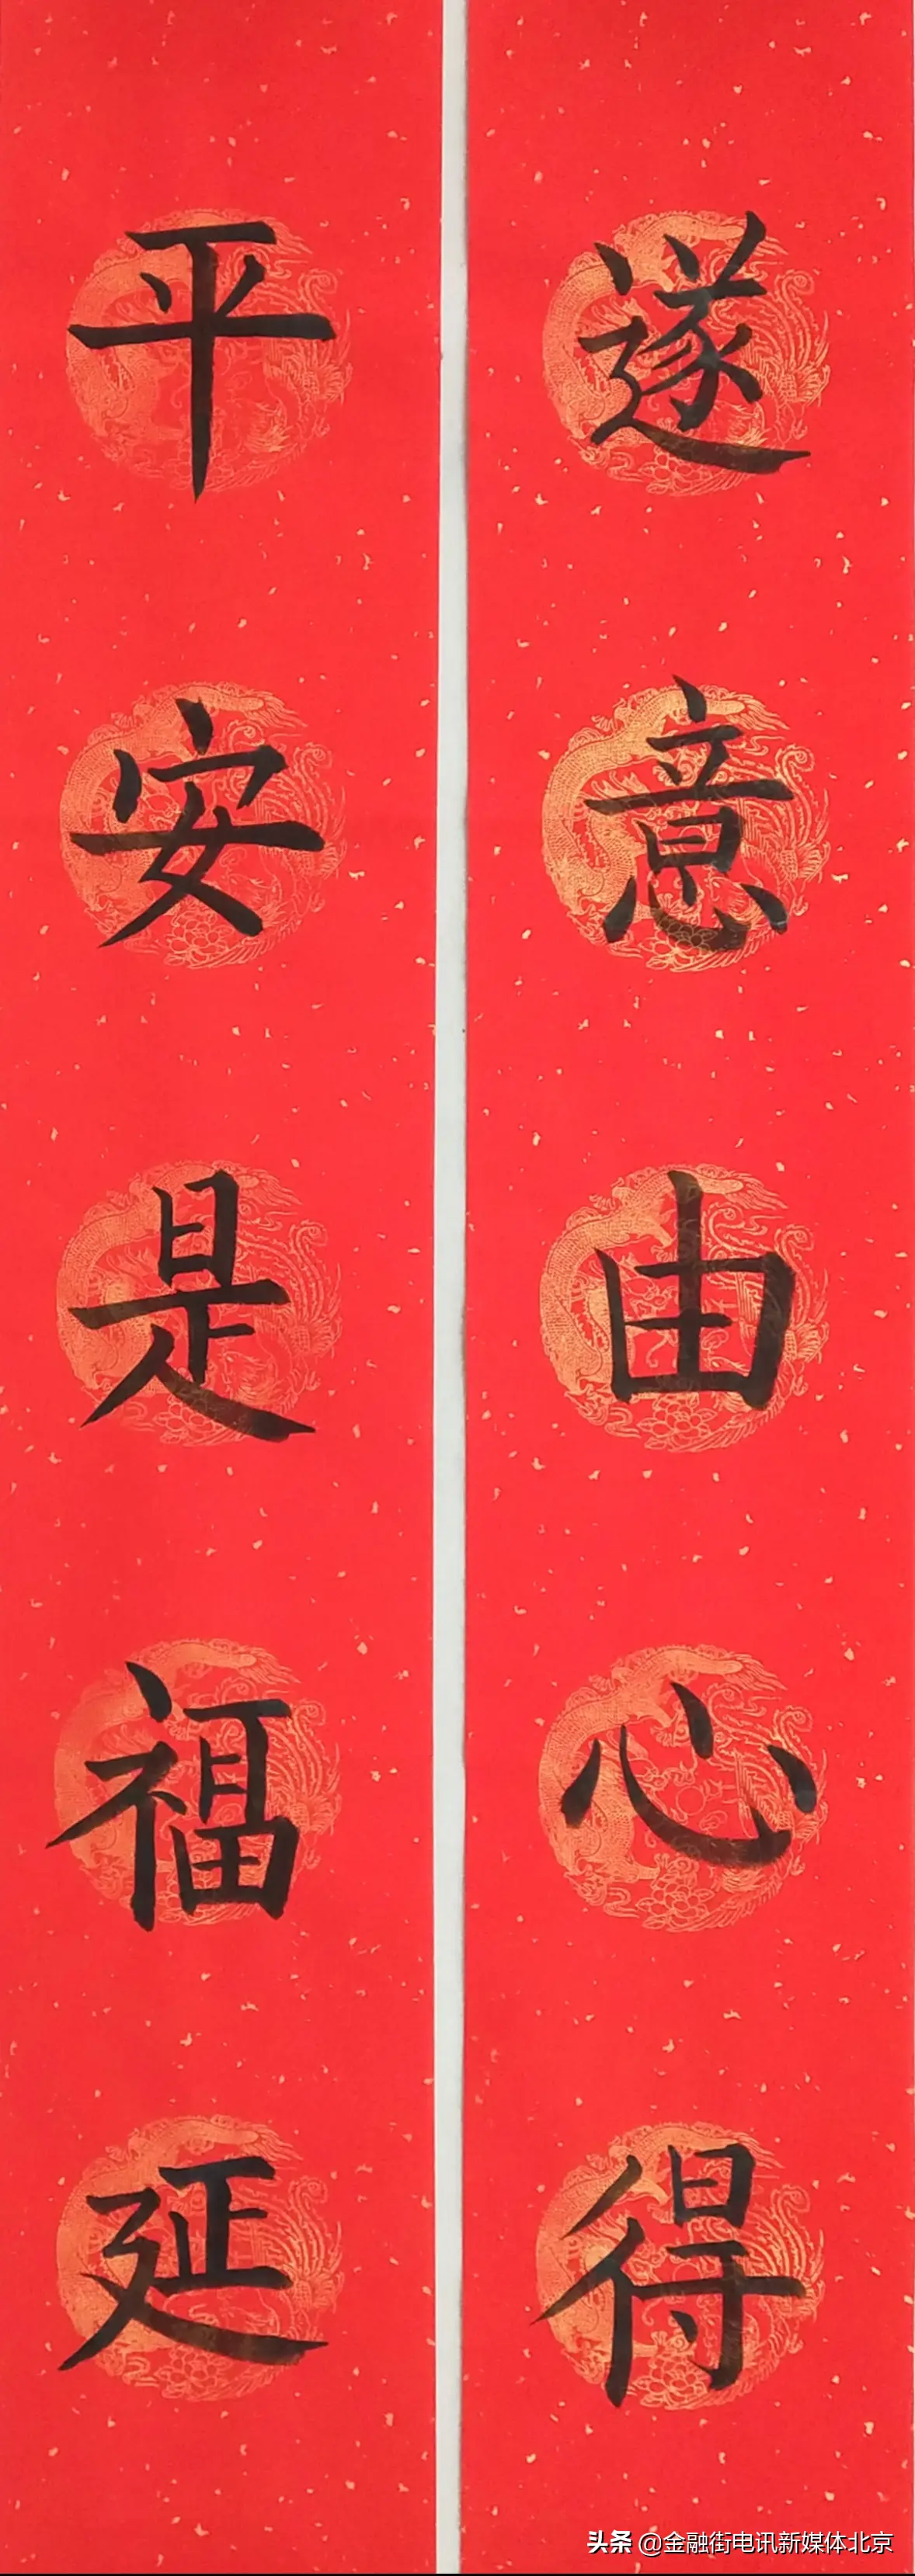 遂意由心得
平安是福延
头条 @金融街电讯新媒体北京